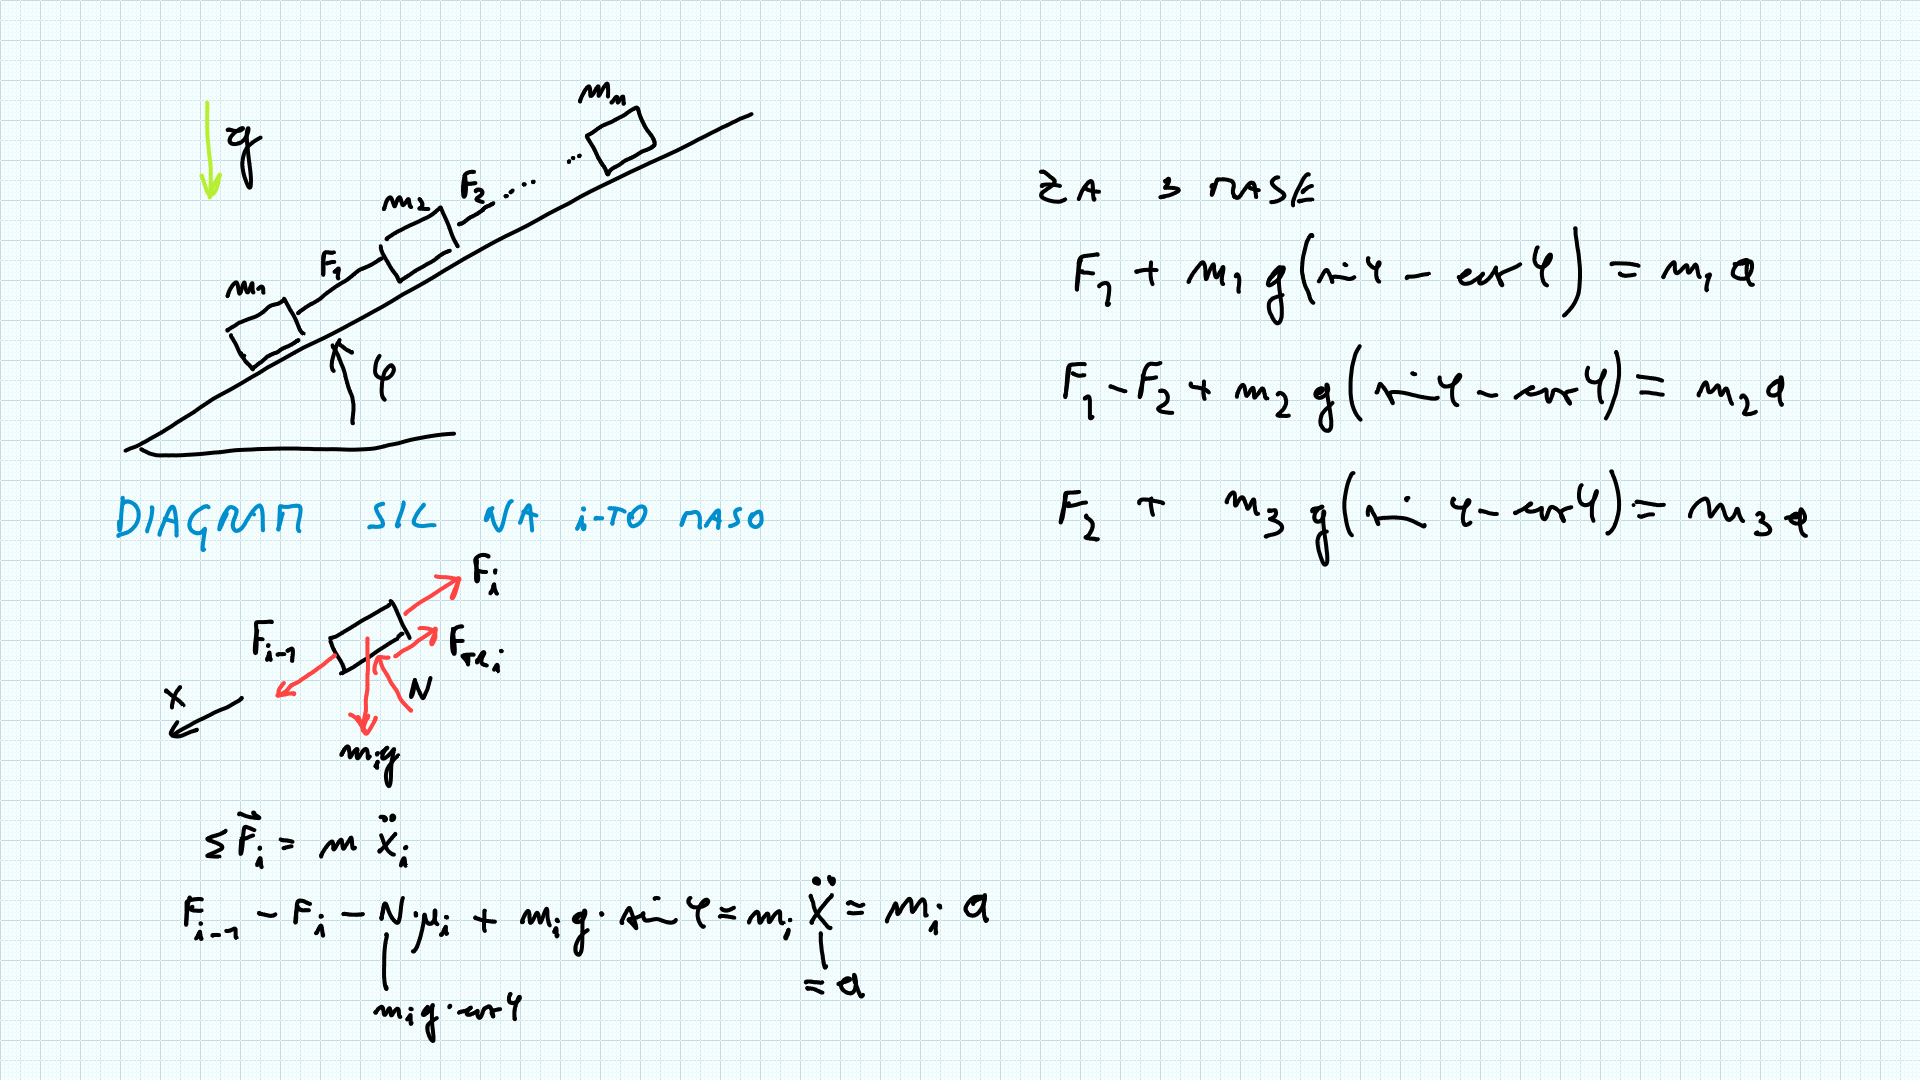 g
m₁
F₁
m₂
F₂
...
...
mₙ
φ
DIAGRAM SIL NA i-TO MASO
Fᵢ
Fᵢ₋₁
F_TRᵢ
N
X
mᵢg
ΣF⃗ᵢ = m ẍᵢ
Fᵢ₋₁ - Fᵢ - N·μᵢ + mᵢg·sin φ = mᵢ ẍ = mᵢ a
= a
mᵢg·cos φ
ZA 3 MASE
F₁ + m₁ g(sin φ - cos φ) = m₁ a
F₁ - F₂ + m₂ g(sin φ - cos φ) = m₂ a
F₂ + m₃ g(sin φ - cos φ) = m₃ a